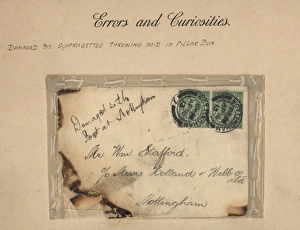 Errors and Curiosities.
DAMAGED BY SUFFRAGETTES THROWING ACID IN PILLAR BOX
Damaged in the
Post at Nottingham
Mr. Wm. Stafford.
c/o Messrs Holland & Webb
Ltd
Nottingham